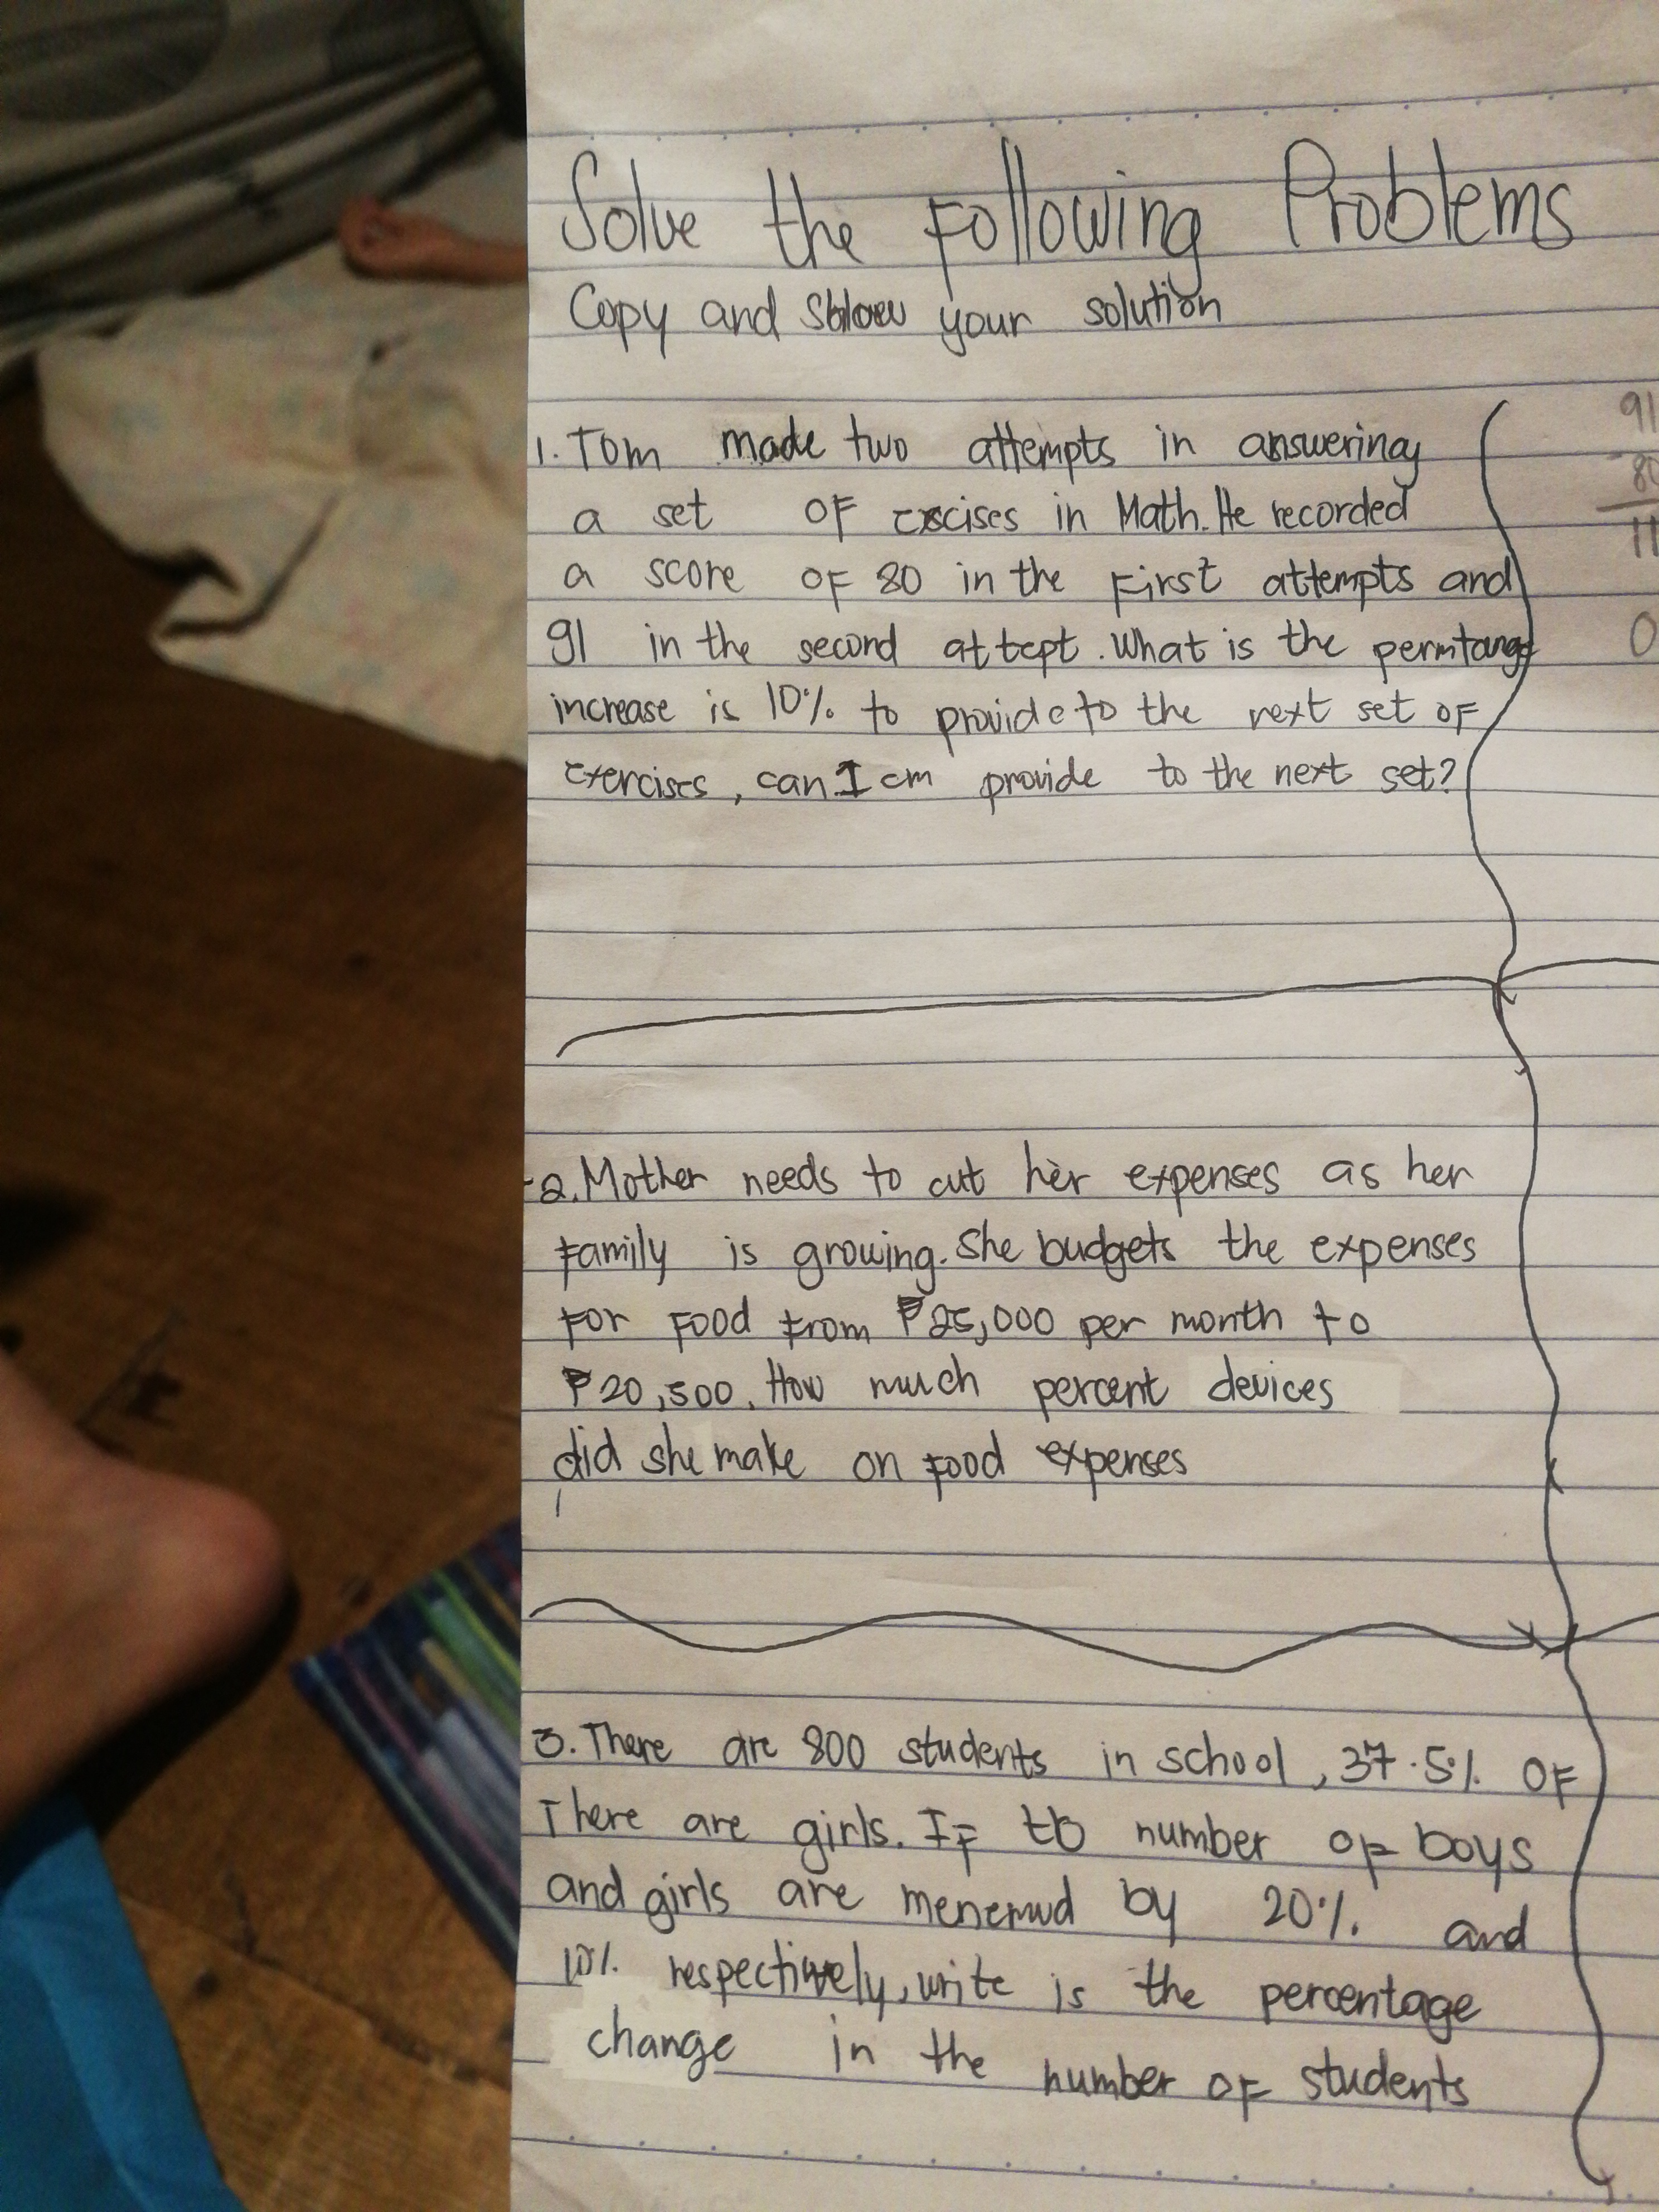 Solve the Following Problems
Copy and Show your solution
1. Tom made two attempts in answering
a set of excises in Math. He recorded
a score of 80 in the first attempts and
91 in the second attept. What is the
increase is 10% to provide to the next set of
exercises, can I cm provide to the next set?
91
- 80
11
0
-2. Mother needs to cut her expenses as her
family is growing. She budgets the expenses
for food from ₱25,000 per month to
₱20,500. How much percent devices
did she make on food expenses
3. There are 800 students in school, 37.5% of
There are girls. If number of boys
and girls are by 20% and
10% respectively, write is the percentage
change in the number of students